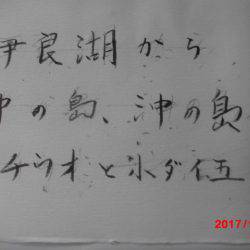 伊良湖から
沖の島、沖の島
チヌオと氷ダイ伍
2017/1